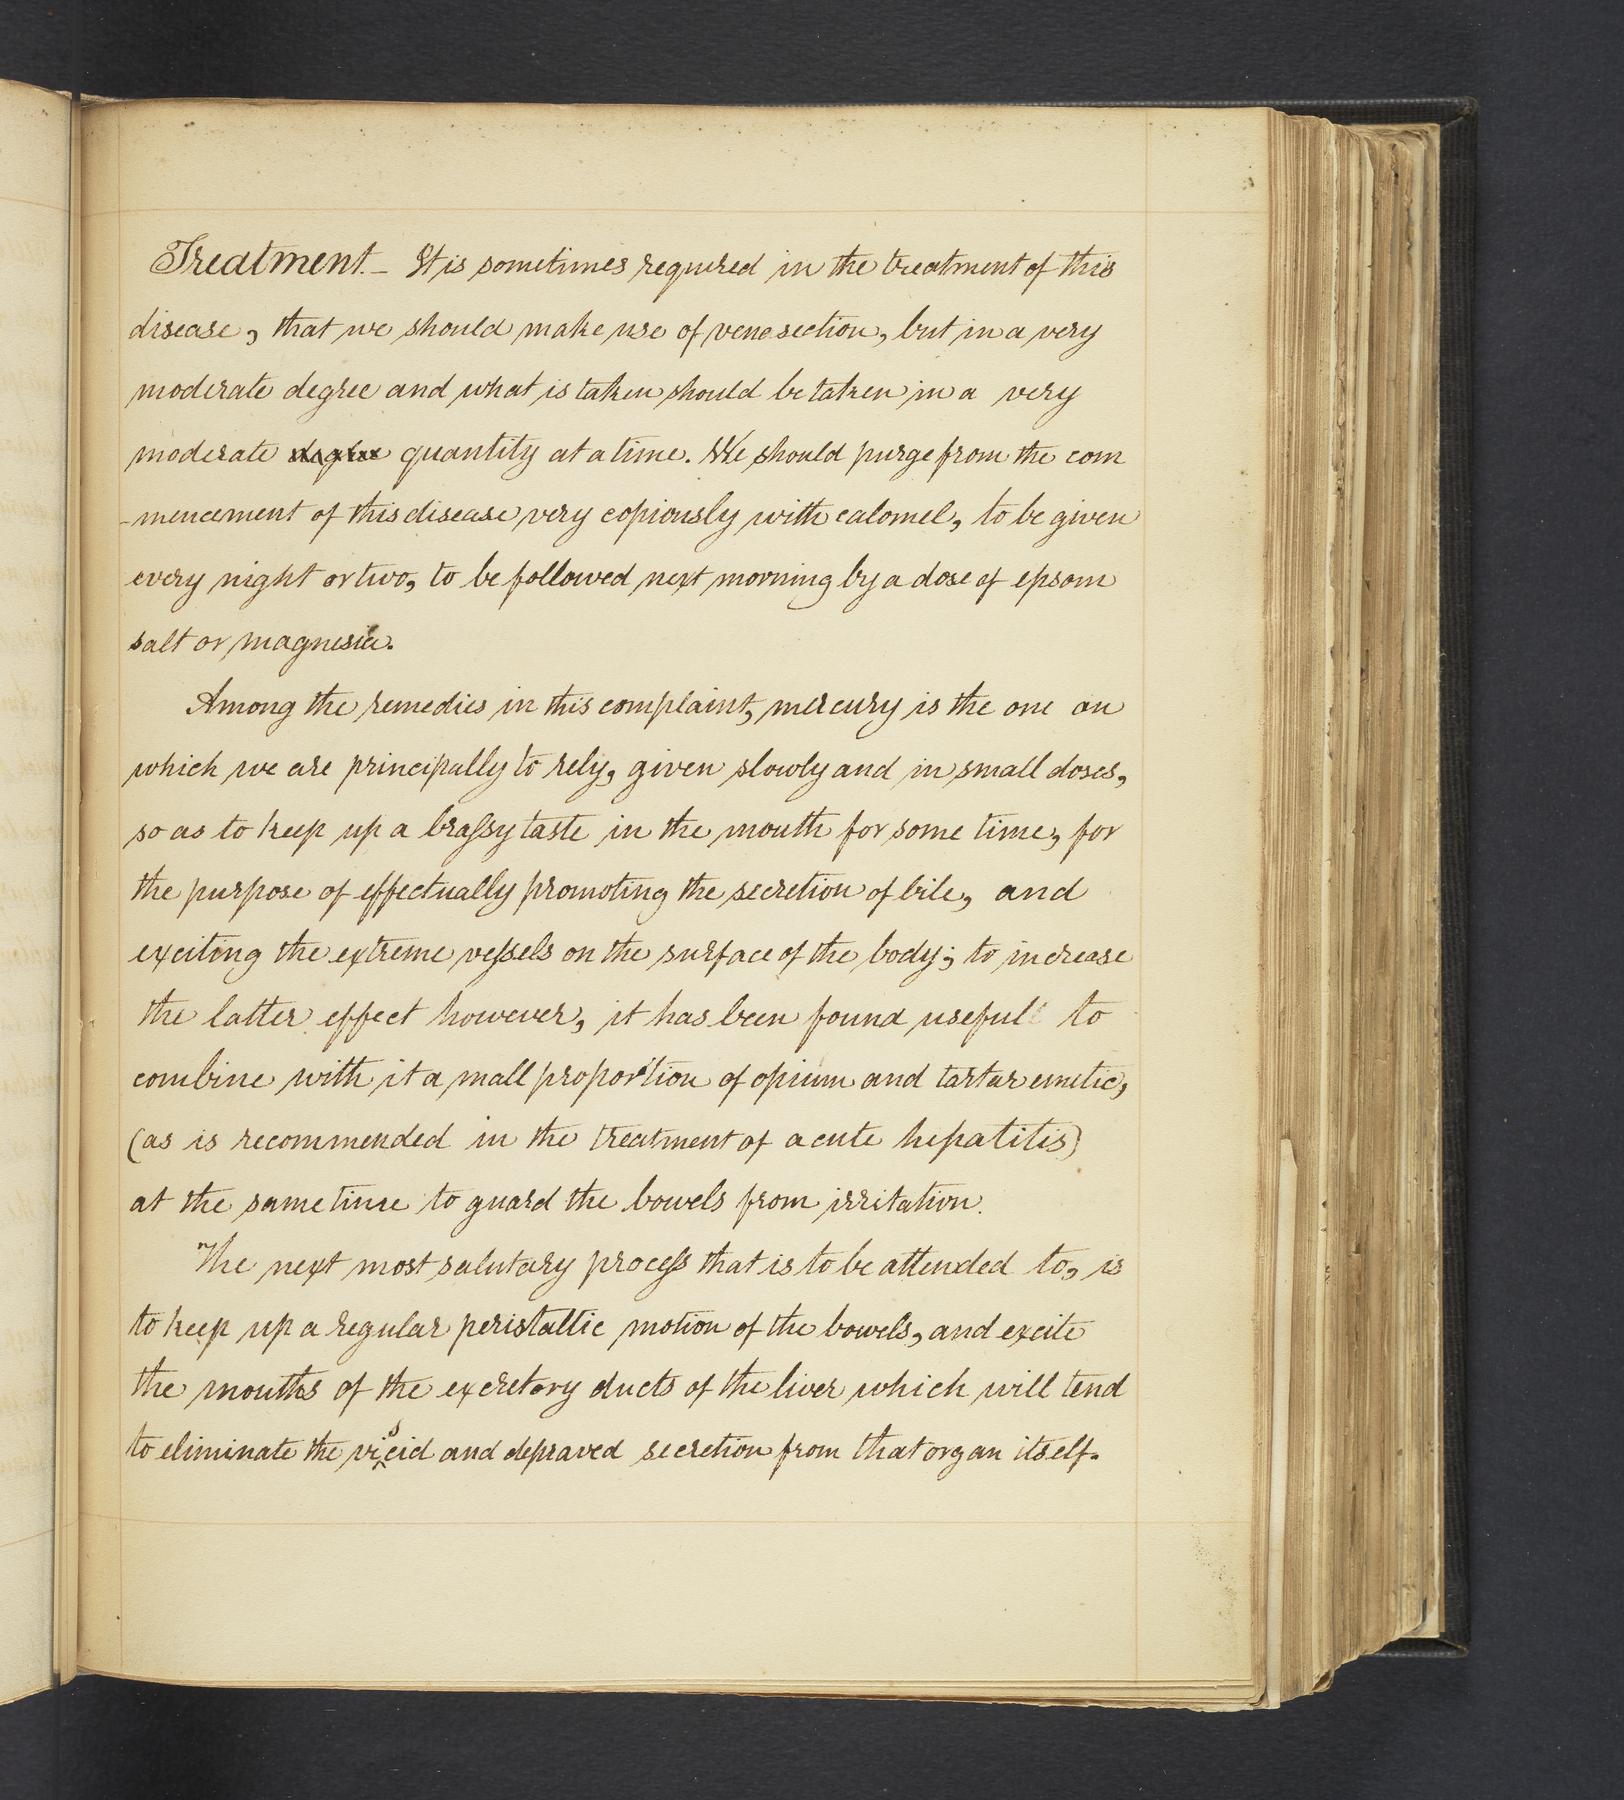 Treatment.– It is sometimes required in the treatment of this
disease, that we should make use of venesection, but in a very
moderate degree and what is taken should be taken in a very
moderate degree quantity at a time. We should purge from the com
-mencement of this disease very copiously with calomel, to be given
every night or two, to be followed next morning by a dose of epsom
salt or magnesia.
Among the remedies in this complaint, mercury is the one on
which we are principally to rely, given slowly and in small doses,
so as to keep up a braſsy taste in the mouth for some time, for
the purpose of effectually promoting the secretion of bile, and
exciting the extreme veſsels on the surface of the body; to increase
the latter effect however, it has been found useful to
combine with it a mall proportion of opium and tartar emetic,
(as is recommended in the treatment of acute hepatitis)
at the same time to guard the bowels from irritation.
The next most salutary proceſs that is to be attended to, is
to keep up a regular peristaltic motion of the bowels, and excite
the mouths of the excretory ducts of the liver which will tend
to eliminate the viscid and depraved secretion from that organ itself.